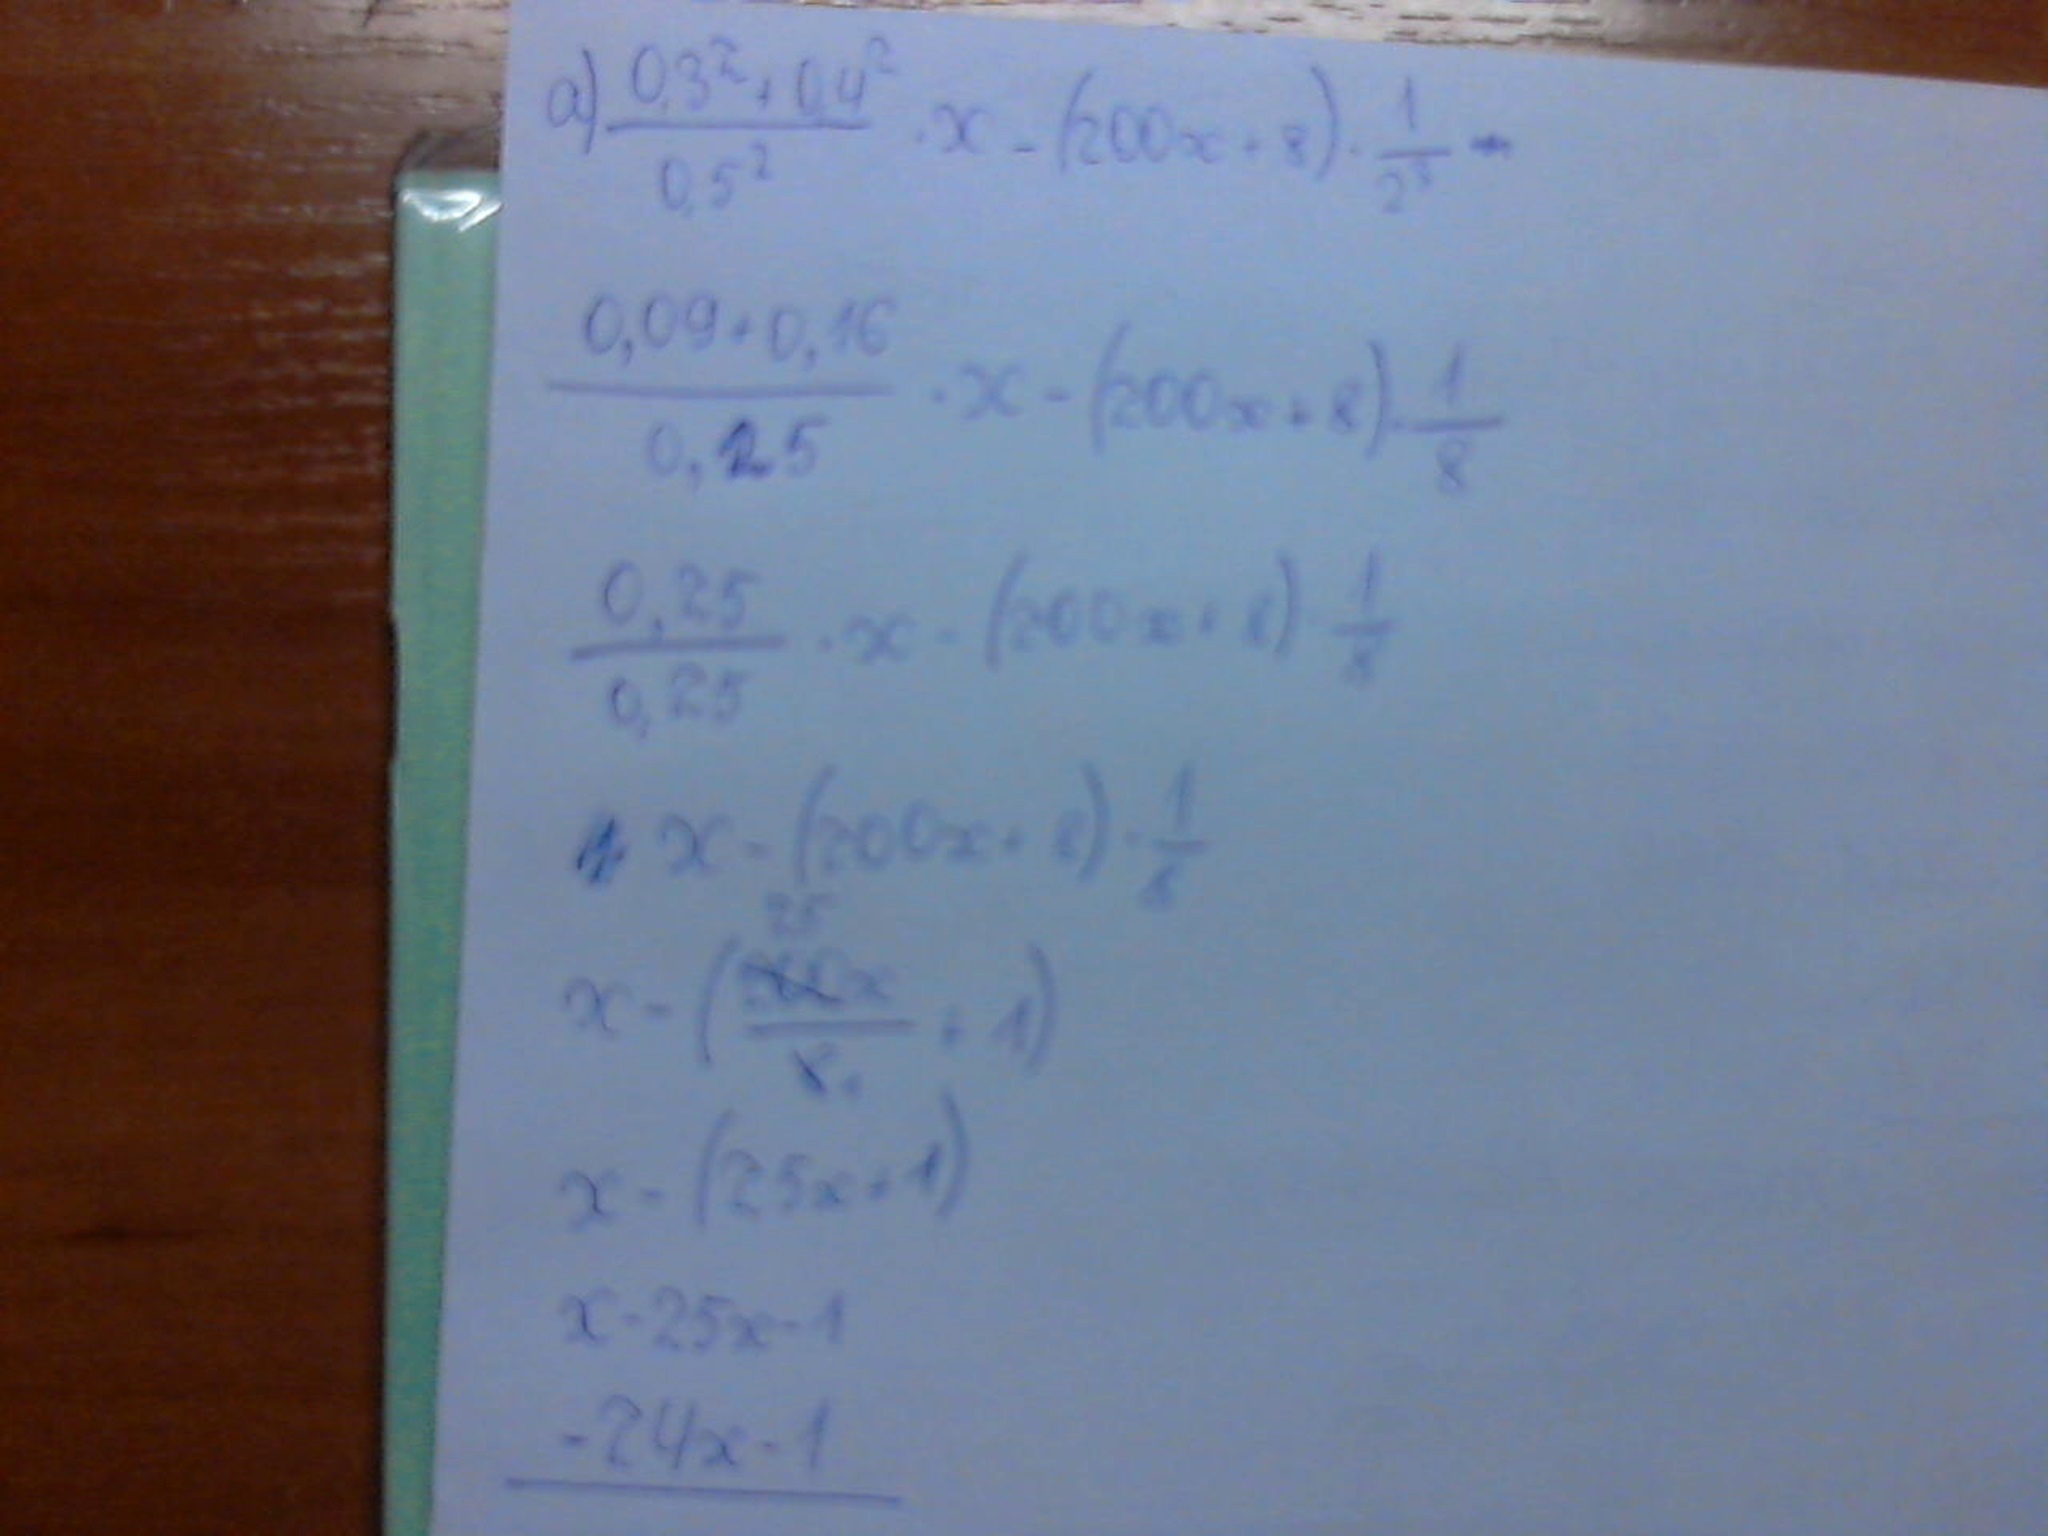 a) (0,3² + 0,4²)/0,5² · x - (200x + 8) · 1/2³ -
(0,09 + 0,16)/0,25 · x - (200x + 8) · 1/8
0,25/0,25 · x - (200x + 8) · 1/8
1 x - (200x + 8) · 1/8
25
x - (200x/8 1 + 1)
x - (25x + 1)
x - 25x - 1
-24x - 1